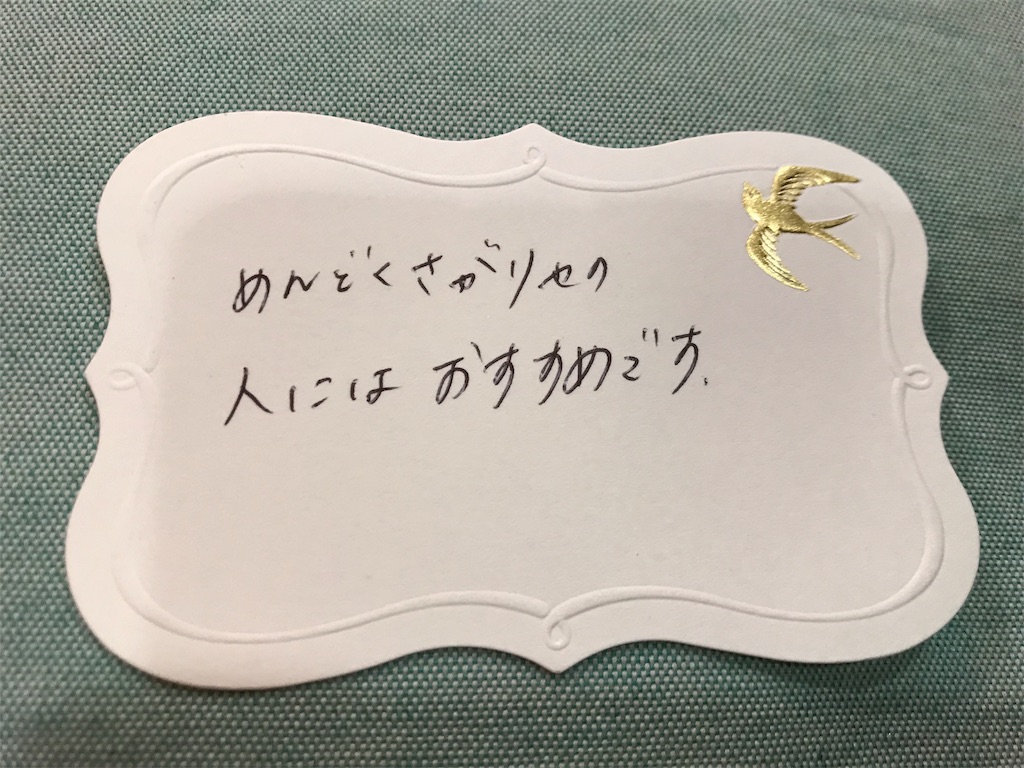 めんどくさがりやの
人にはおすすめです.